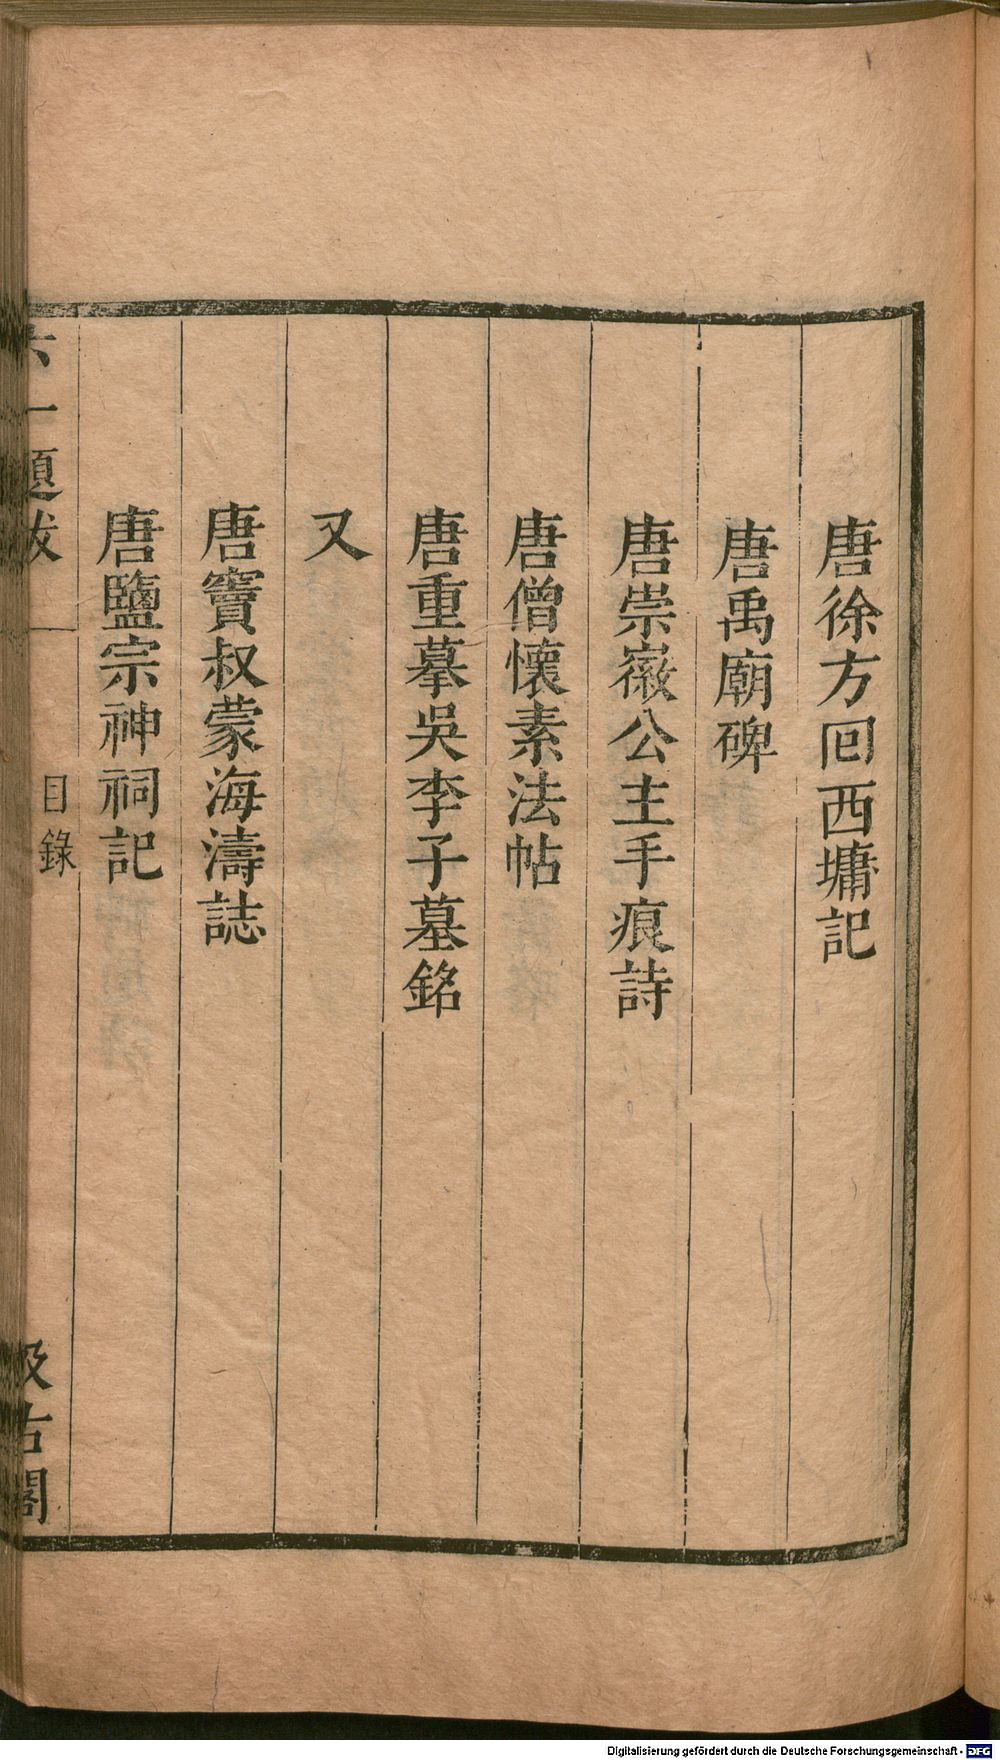 唐徐方回西墉記
唐禹廟碑
唐崇徽公主手痕詩
唐僧懷素法帖
唐重摹吳季子墓銘
又
唐竇叔蒙海濤誌
唐鹽宗神祠記
六一題跋
目錄
汲古閣
Digitalisierung gefördert durch die Deutsche Forschungsgemeinschaft - DFG